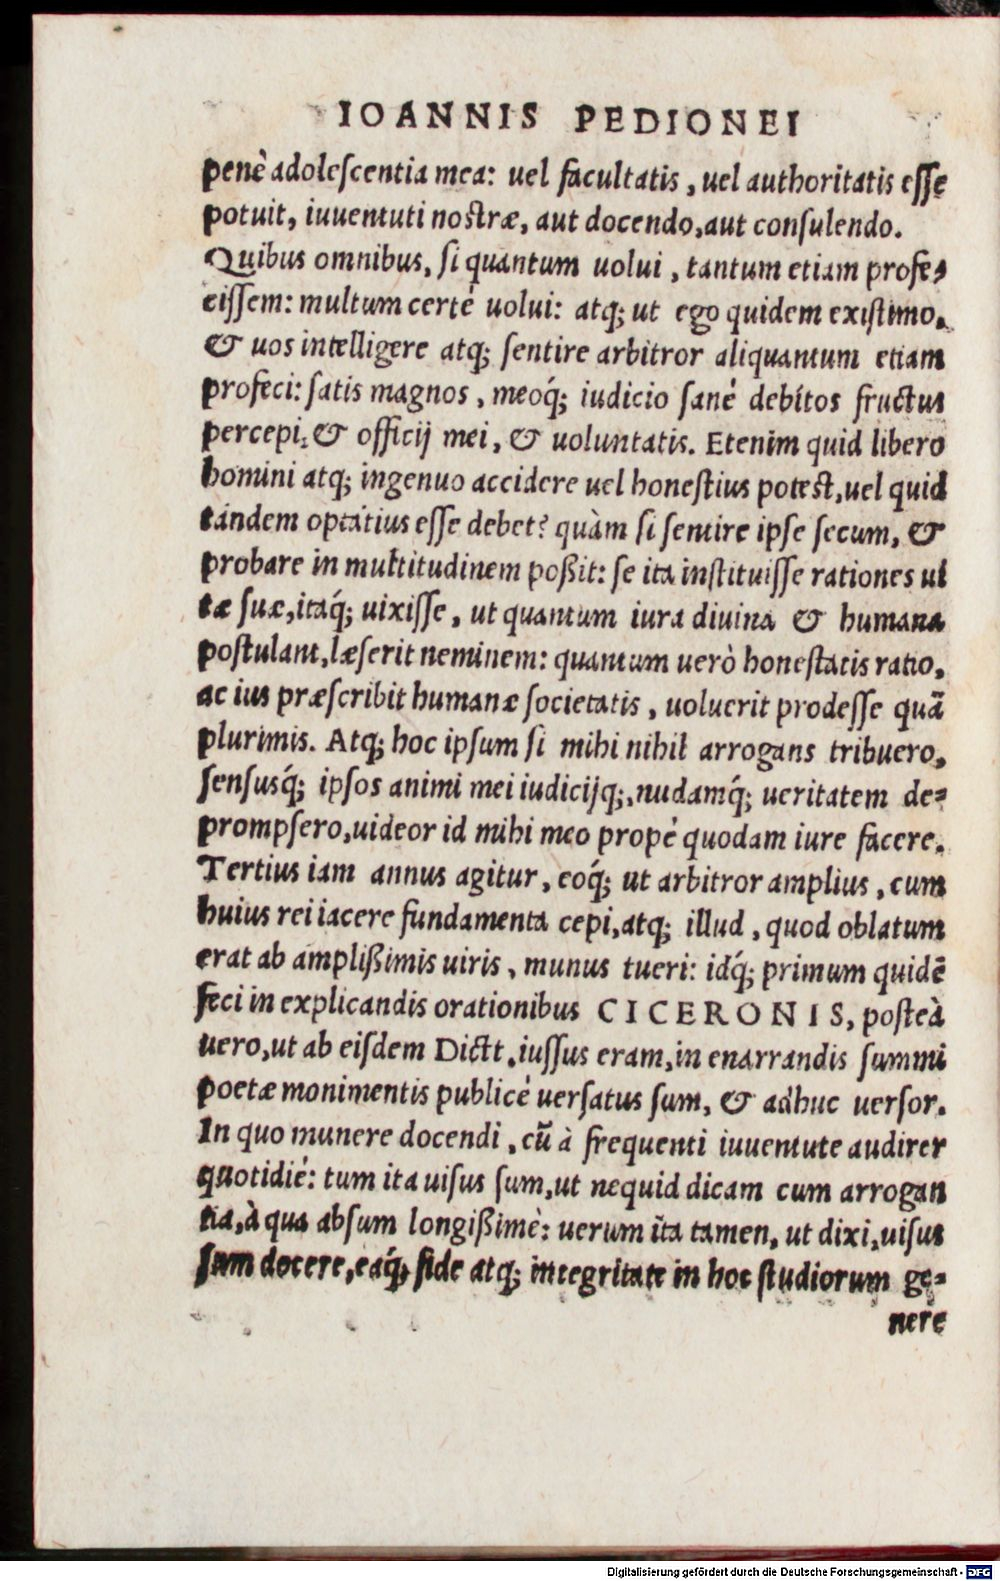 IOANNIS PEDIONEI
penè adoleſcentia mea: uel facultatis, uel authoritatis eſſe
potuit, iuuentuti noſtræ, aut docendo, aut conſulendo.
Quibus omnibus, ſi quantum uolui, tantum etiam profe-
ciſſem: multum certè uolui: atq; ut ego quidem exiſtimo,
& uos intelligere atq; ſentire arbitror aliquantum etiam
profeci: ſatis magnos, meoq́; iudicio ſanè debitos fructus
percepi, & officij mei, & uoluntatis. Etenim quid libero
homini atq; ingenuo accidere uel honeſtius poteſt, uel quid
tandem optatius eſſe debet? quàm ſi ſentire ipſe ſecum, &
probare in multitudinem poßit: ſe ita inſtituiſſe rationes ui
tæ ſuæ, itaq́; uixiſſe, ut quantum iura diuina & humana
poſtulant, læſerit neminem: quantum uerò honeſtatis ratio,
ac ius præſcribit humanæ ſocietatis, uoluerit prodeſſe quã
plurimis. Atq; hoc ipſum ſi mihi nihil arrogans tribuero,
ſenſusq́; ipſos animi mei iudicijq;, nudamq́; ueritatem de-
prompſero, uideor id mihi meo propè quodam iure facere.
Tertius iam annus agitur, eoq́; ut arbitror amplius, cum
huius rei iacere fundamenta cepi, atq; illud, quod oblatum
erat ab amplißimis uiris, munus tueri: idq́; primum quidẽ
feci in explicandis orationibus CICERONIS, poſteà
uero, ut ab eiſdem Dictt. iuſſus eram, in enarrandis ſummi
poetæ monimentis publicè uerſatus ſum, & adhuc uerſor.
In quo munere docendi, cũ à frequenti iuuentute audirer
quotidiè: tum ita uiſus ſum, ut nequid dicam cum arrogan
tia, à qua abſum longißimè: uerum ita tamen, ut dixi, uiſus
ſum docere, eaq́; fide atq; integritate in hoc ſtudiorum ge-
nere
Digitalisierung gefördert durch die Deutsche Forschungsgemeinschaft - DFG